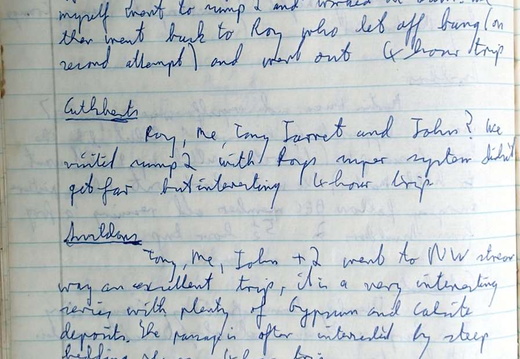 myself went to sump 2 and
then went back to Roy who let off bang (on
second attempt) and went out 4 hour trip
Cuthberts
Roy, Me, Tony Jarret and John? We
visited sump 2 with Roys super system didn't
get far but interesting 4 hour trip
Tony, Me, John + 2 went to NW stream
way an excellent trip, it is a very interesting
series with plenty of Gypsum and calcite
deposits. The passage is often intersected by steep
bedding